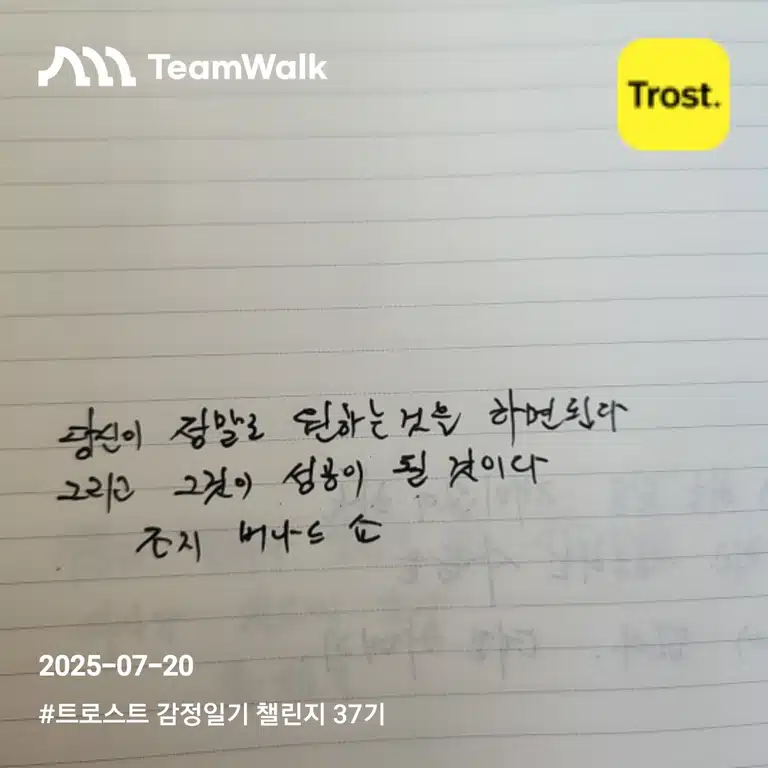 TeamWalk
Trost.
당신이 정말로 원하는것을 하면된다
그리고 그것이 성공이 될 것이다
조지 버나드 쇼
2025-07-20
#트로스트 감정일기 챌린지 37기